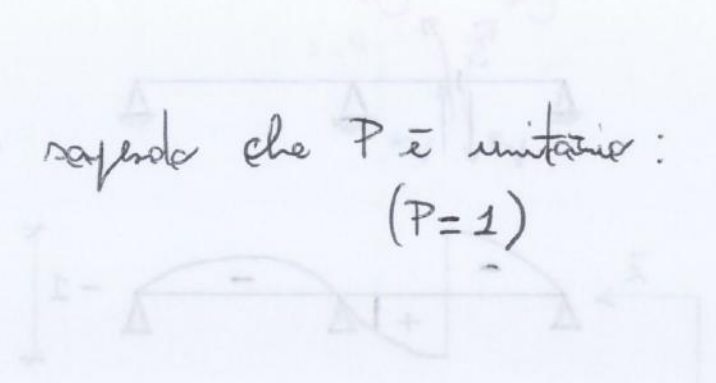 sapendo che P è unitario:
(P=1)